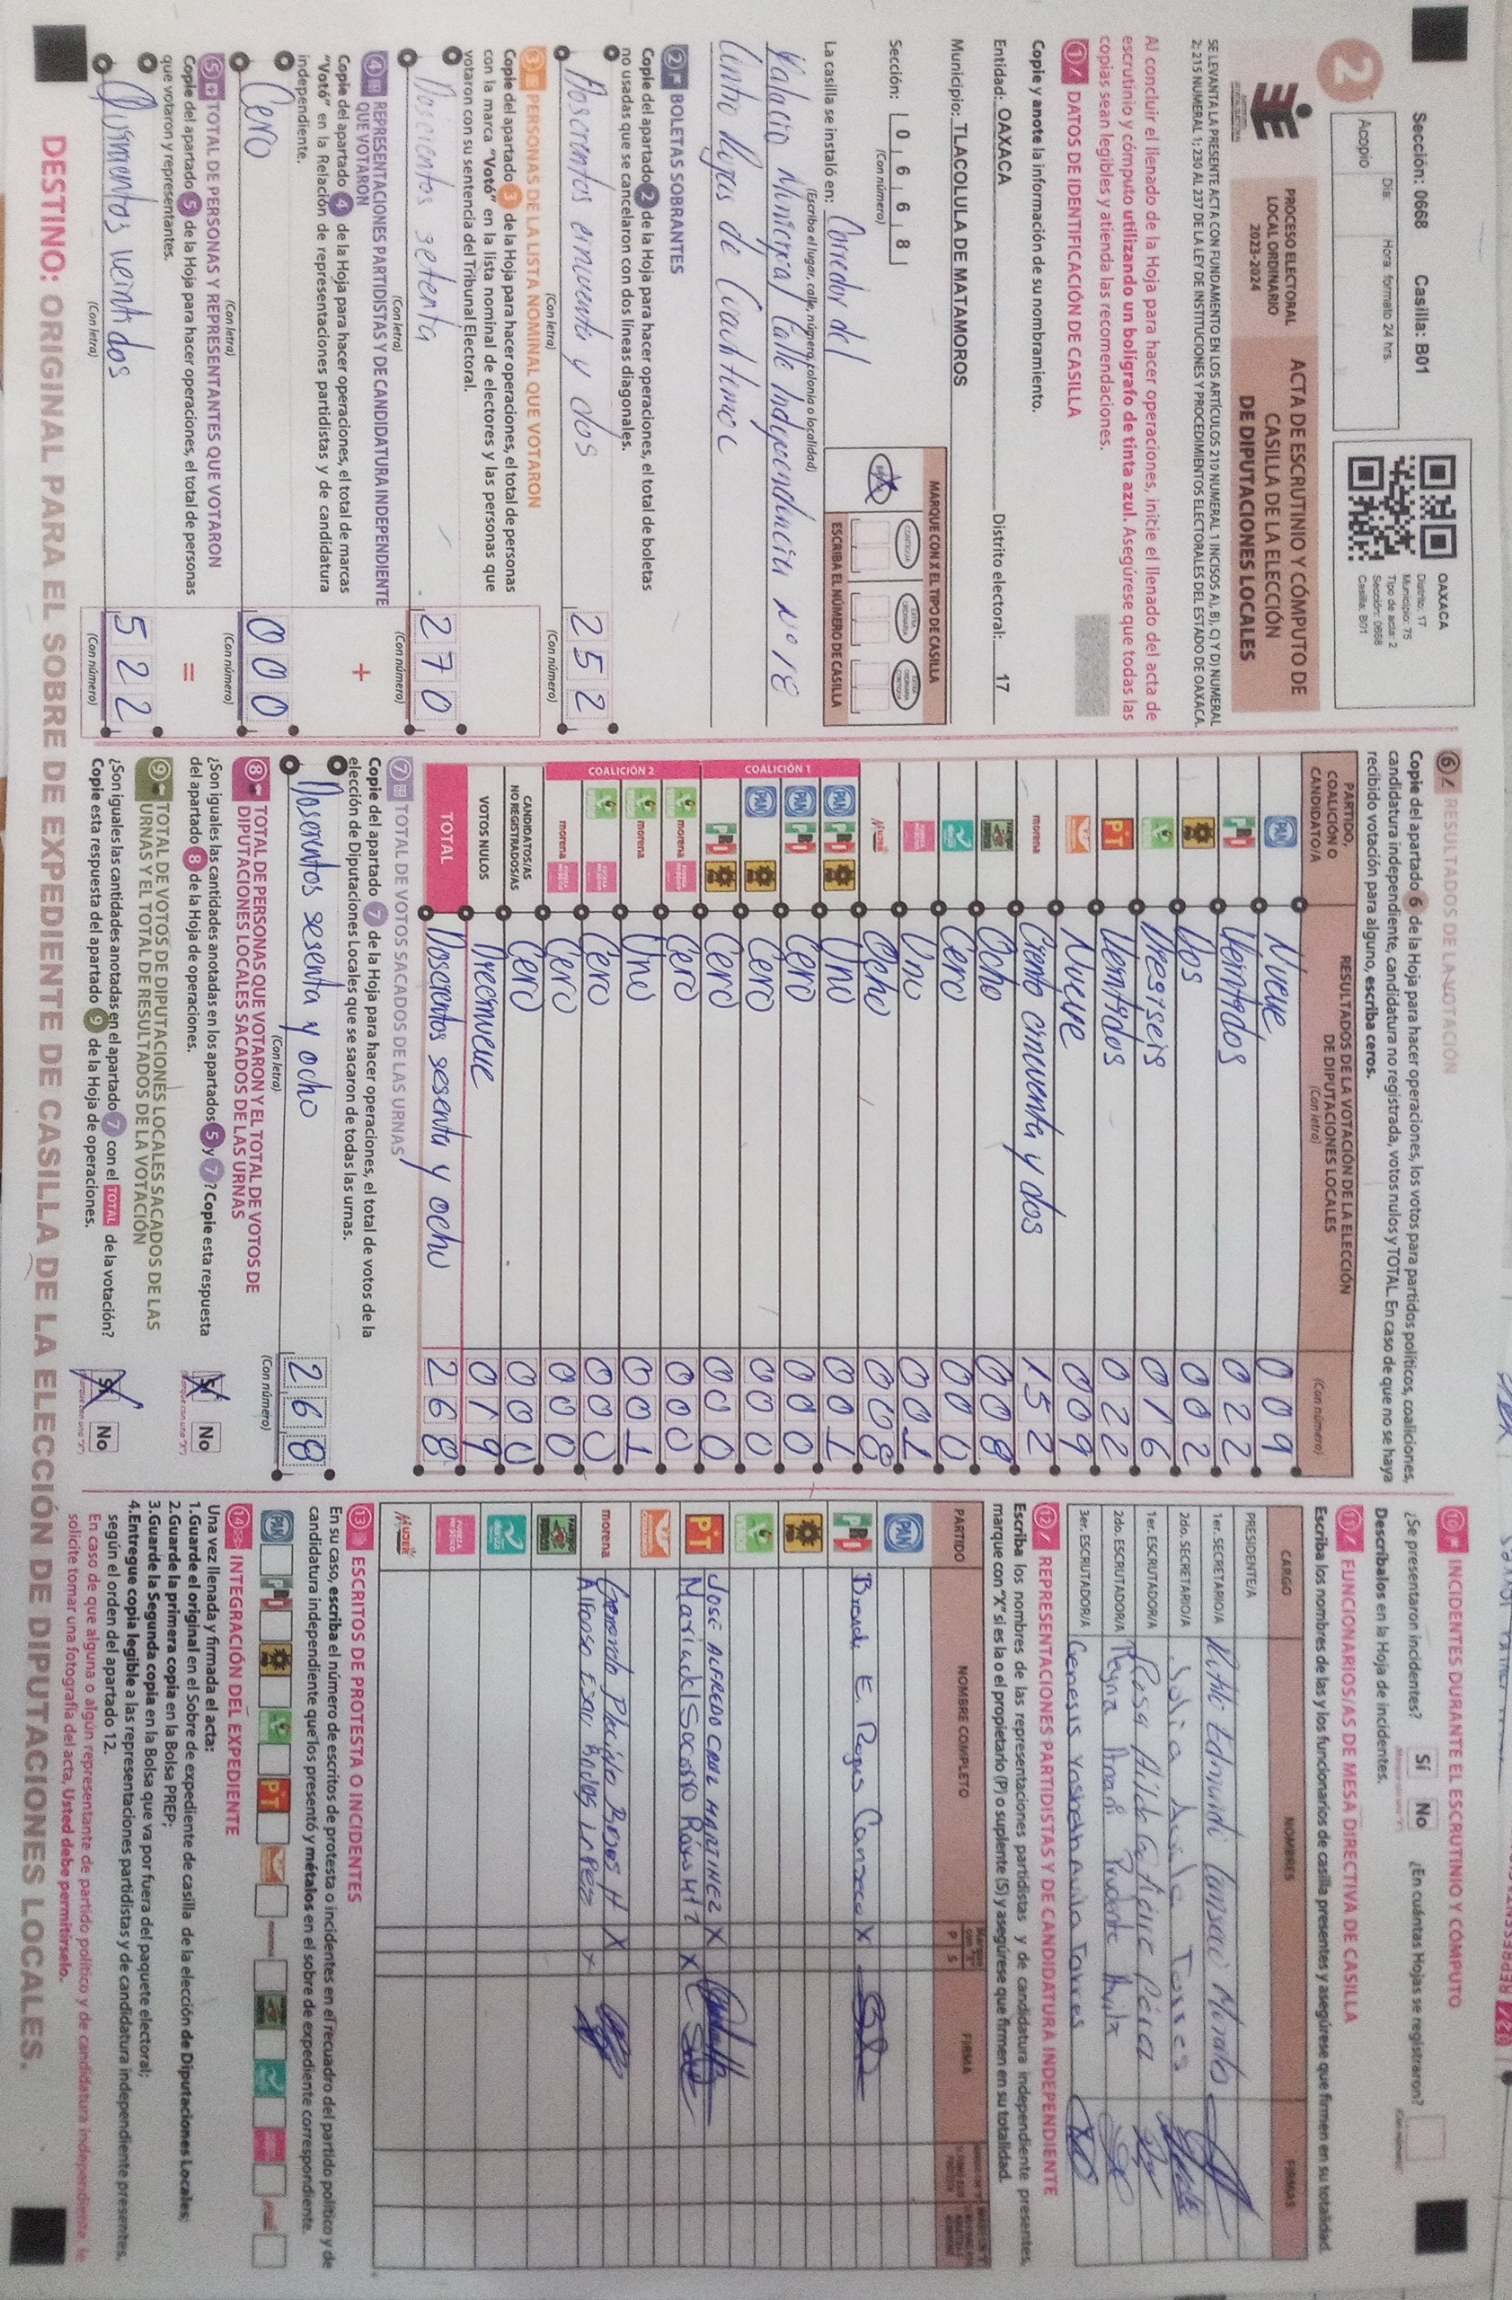 Sección: 0668 Casilla: B01
Día: Hora: formato 24 hrs.
Acopio
OAXACA
Distrito: 17
Municipio: 75
Tipo de acta: 2
Sección: 0668
Casilla: B01
2
PROCESO ELECTORAL
LOCAL ORDINARIO
2023-2024
ACTA DE ESCRUTINIO Y CÓMPUTO DE
CASILLA DE LA ELECCIÓN
DE DIPUTACIONES LOCALES
SE LEVANTA LA PRESENTE ACTA CON FUNDAMENTO EN LOS ARTÍCULOS 210 NUMERAL 1 INCISOS A), B), C) Y D) NUMERAL
2; 215 NUMERAL 1; 230 AL 237 DE LA LEY DE INSTITUCIONES Y PROCEDIMIENTOS ELECTORALES DEL ESTADO DE OAXACA.
Al concluir el llenado de la Hoja para hacer operaciones, inicie el llenado del acta de
escrutinio y cómputo utilizando un bolígrafo de tinta azul. Asegúrese que todas las
copias sean legibles y atienda las recomendaciones.
1 DATOS DE IDENTIFICACIÓN DE CASILLA
Copie y anote la información de su nombramiento.
Entidad: OAXACA Distrito electoral: 17
Municipio: TLACOLULA DE MATAMOROS
Sección: 0 6 6 8
(Con número)
MARQUE CON X EL TIPO DE CASILLA
ESCRIBA EL NÚMERO DE CASILLA
La casilla se instaló en: Corredor del
(Escriba el lugar, calle, número, colonia o localidad)
Palacio Municipal Calle Independencia N° 18
Centro Hojas de Cuauhtemoc
2 BOLETAS SOBRANTES
Copie del apartado 2 de la Hoja para hacer operaciones, el total de boletas
no usadas que se cancelaron con dos líneas diagonales.
Doscientos cincuenta y dos 2 5 2
(Con letra) (Con número)
3 PERSONAS DE LA LISTA NOMINAL QUE VOTARON
Copie del apartado 3 de la Hoja para hacer operaciones, el total de personas
con la marca "Votó" en la lista nominal de electores y las personas que
votaron con su sentencia del Tribunal Electoral.
Doscientos setenta 2 7 0
(Con letra) (Con número)
4 REPRESENTACIONES PARTIDISTAS Y DE CANDIDATURA INDEPENDIENTE
QUE VOTARON
+
Copie del apartado 4 de la Hoja para hacer operaciones, el total de marcas
"Votó" en la Relación de representaciones partidistas y de candidatura
independiente.
Cero 0 0 0
(Con letra) (Con número)
5 TOTAL DE PERSONAS Y REPRESENTANTES QUE VOTARON
=
Copie del apartado 5 de la Hoja para hacer operaciones, el total de personas
que votaron y representantes.
Quinientos veintidos 5 2 2
(Con letra) (Con número)
6 RESULTADOS DE LA VOTACIÓN
Copie del apartado 6 de la Hoja para hacer operaciones, los votos para partidos políticos, coaliciones,
candidatura independiente, candidatura no registrada, votos nulos y TOTAL. En caso de que no se haya
recibido votación para alguno, escriba ceros.
PARTIDO,
COALICIÓN O
CANDIDATO/A
RESULTADOS DE LA VOTACIÓN DE LA ELECCIÓN
DE DIPUTACIONES LOCALES
(Con letra) (Con número)
PAN Nueve 0 0 9
PRI Veintidos 0 2 2
PRD Dos 0 0 2
VERDE Dieciseis 0 1 6
PT Veintidos 0 2 2
Nueve 0 0 9
morena Ciento cincuenta y dos 1 5 2
Ocho 0 0 8
Cero 0 0 0
Uno 0 0 1
MUJER Ocho 0 0 8
COALICIÓN 1
PAN PRI PRD Uno 0 0 1
PAN PRI Cero 0 0 0
PAN PRD Cero 0 0 0
PRI PRD Cero 0 0 0
COALICIÓN 2
VERDE morena FUERZA POR MÉXICO Cero 0 0 0
VERDE morena Uno 0 0 1
VERDE FUERZA POR MÉXICO Cero 0 0 0
morena FUERZA POR MÉXICO Cero 0 0 0
CANDIDATOS/AS
NO REGISTRADOS/AS Cero 0 0 0
VOTOS NULOS Diecinueve 0 1 9
TOTAL Doscientos sesenta y ocho 2 6 8
7 TOTAL DE VOTOS SACADOS DE LAS URNAS
Copie del apartado 7 de la Hoja para hacer operaciones, el total de votos de la
elección de Diputaciones Locales que se sacaron de todas las urnas.
Doscientos sesenta y ocho 2 6 8
(Con letra) (Con número)
8 TOTAL DE PERSONAS QUE VOTARON Y EL TOTAL DE VOTOS DE
DIPUTACIONES LOCALES SACADOS DE LAS URNAS
¿Son iguales las cantidades anotadas en los apartados 5 y 7? Copie esta respuesta
del apartado 8 de la Hoja de operaciones.
Sí No
9 TOTAL DE VOTOS DE DIPUTACIONES LOCALES SACADOS DE LAS
URNAS Y EL TOTAL DE RESULTADOS DE LA VOTACIÓN
¿Son iguales las cantidades anotadas en el apartado 7 con el TOTAL de la votación?
Copie esta respuesta del apartado 9 de la Hoja de operaciones.
Sí No
10 INCIDENTES DURANTE EL ESCRUTINIO Y CÓMPUTO
¿Se presentaron incidentes? Sí No ¿En cuántas Hojas se registraron?
Descríbalos en la Hoja de incidentes.
11 FUNCIONARIOS/AS DE MESA DIRECTIVA DE CASILLA
Escriba los nombres de las y los funcionarios de casilla presentes y asegúrese que firmen en su totalidad.
CARGO NOMBRES FIRMAS
PRESIDENTE/A
1er. SECRETARIO/A Morales
2do. SECRETARIO/A Julia Avila Torres
1er. ESCRUTADOR/A Rosa Hilda
2do. ESCRUTADOR/A Reyna Anahi Prudente Avila
3er. ESCRUTADOR/A Genesis Yosheth Avila Torres
12 REPRESENTACIONES PARTIDISTAS Y DE CANDIDATURA INDEPENDIENTE
Escriba los nombres de las representaciones partidistas y de candidatura independiente presentes,
marque con "X" si es la o el propietario (P) o suplente (S) y asegúrese que firmen en su totalidad.
PARTIDO NOMBRE COMPLETO P S FIRMA
PAN
PRI Brenda E. Reyes Canseco X
PRD
VERDE
PT JOSE ALFREDO CRUZ MARTINEZ X
Maria del Socorro X
morena Gerardo Placido X
Alfonso Esau X
MUJER
13 ESCRITOS DE PROTESTA O INCIDENTES
En su caso, escriba el número de escritos de protesta o incidentes en el recuadro del partido político y de
candidatura independiente que los presentó y métalos en el sobre de expediente correspondiente.
14 INTEGRACIÓN DEL EXPEDIENTE
Una vez llenada y firmada el acta:
1.Guarde el original en el Sobre de expediente de casilla de la elección de Diputaciones Locales;
2.Guarde la primera copia en la Bolsa PREP;
3.Guarde la Segunda copia en la Bolsa que va por fuera del paquete electoral;
4.Entregue copia legible a las representaciones partidistas y de candidatura independiente presentes,
según el orden del apartado 12.
En caso de que alguna o algún representante de partido político y de candidatura independiente le
solicite tomar una fotografía del acta, Usted debe permitírselo.
DESTINO: ORIGINAL PARA EL SOBRE DE EXPEDIENTE DE CASILLA DE LA ELECCIÓN DE DIPUTACIONES LOCALES.